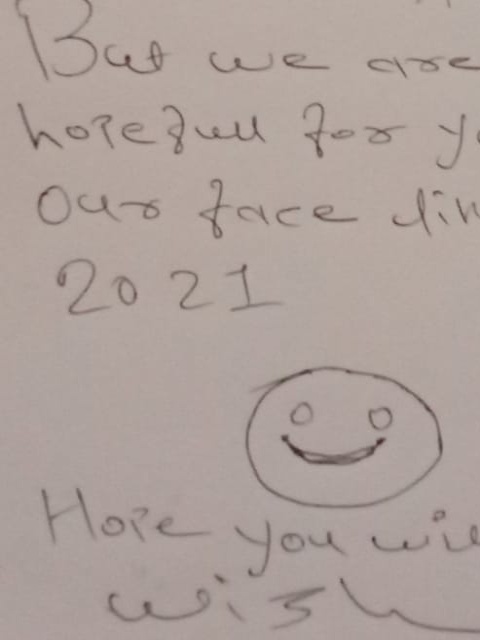 But we are
hopefull for
Our face
2021
Hope you
wish